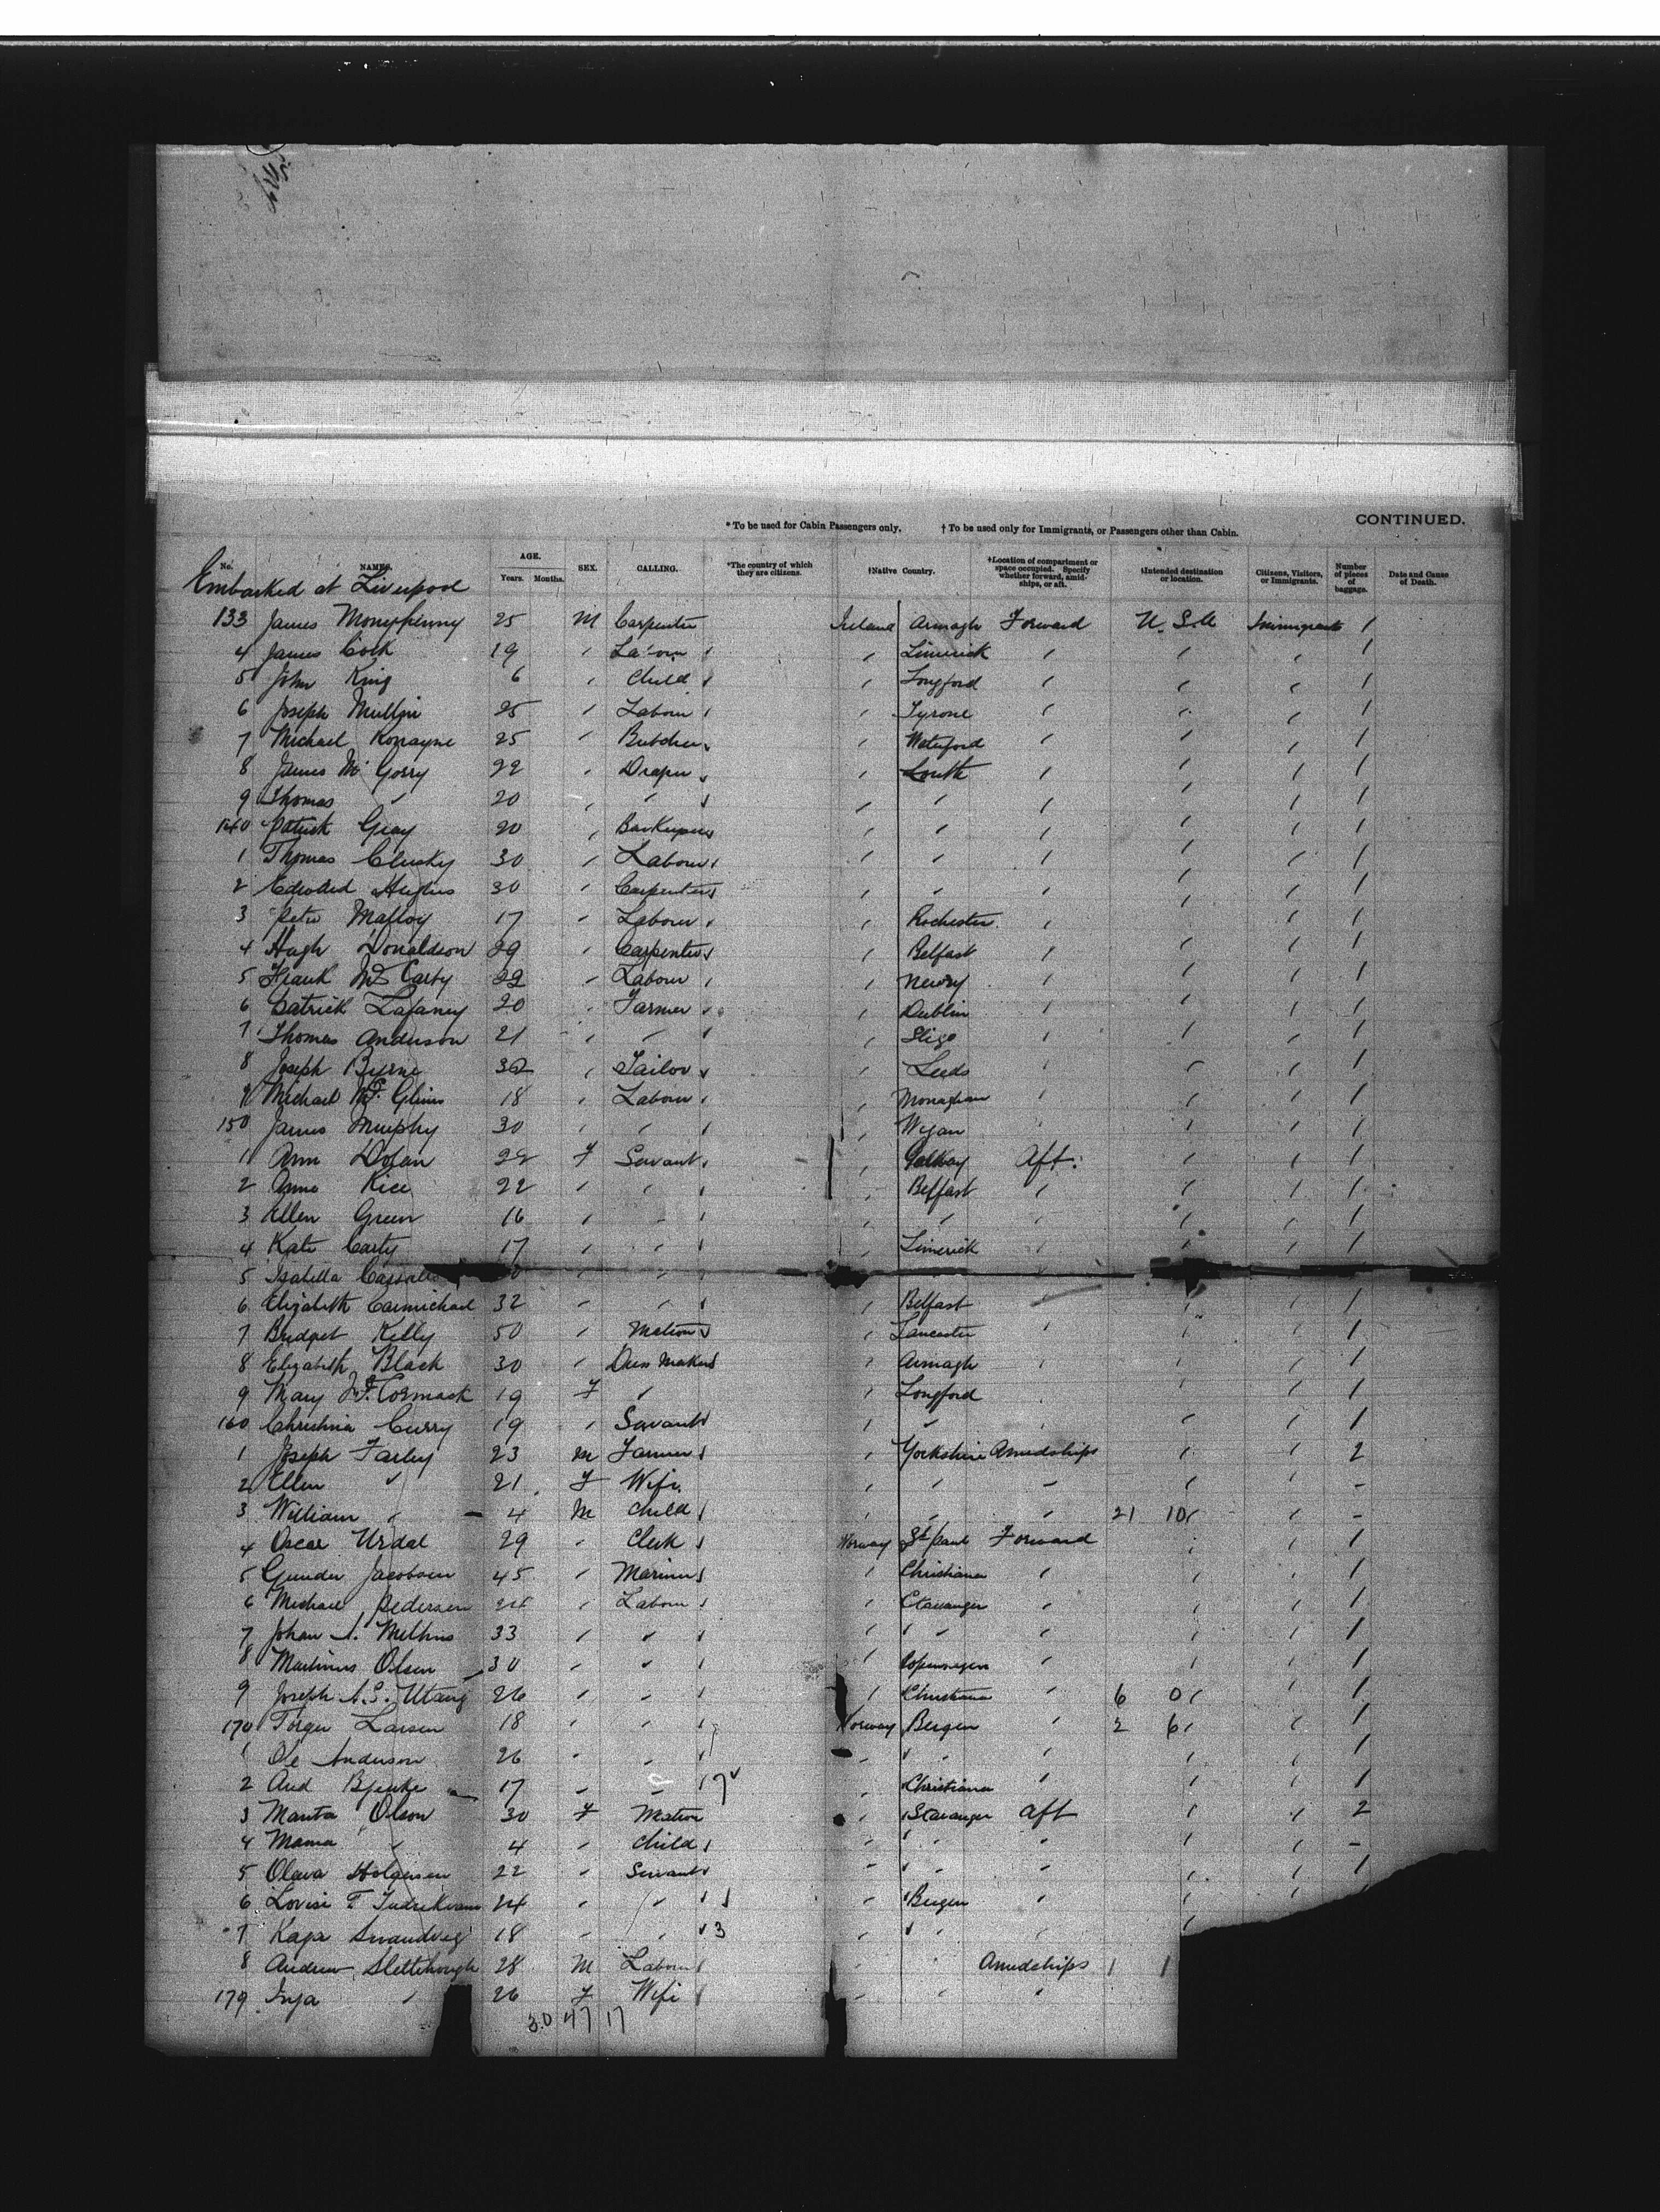 CONTINUED.
* To be used for Cabin Passengers only. † To be used only for Immigrants, or Passengers other than Cabin.
No. NAMES. AGE. Years. Months. SEX. CALLING. *The country of which they are citizens. †Native Country. †Location of compartment or space occupied. Specify whether forward, amidships, or aft. †Intended destination or location. Citizens, Visitors, or Immigrants. Number of pieces of baggage. Date and Cause of Death.
Embarked at Liverpool
133 James Monypenny 25 M Carpenter Ireland Armagh Forward U.S.A Immigrants 1
4 James 19 " Labour " Limerick " " " 1
5 John King 6 " Child " Longford " " " 1
6 Joseph Mullin 25 " Labour " Tyrone " " " 1
7 Michael 25 " Butcher " Waterford " " " 1
8 James McGorry 22 " Draper " Louth " " " 1
9 Thomas " 20 " " " " " " " 1
140 Patrick Gray 20 " Barkeeper " " " " " 1
1 Thomas Clusky 30 " Labour " " " " " 1
2 Edward Hughes 30 " Carpenter " " " " " 1
3 Peter Malloy 17 " Labour " Rochester " " " 1
4 Hugh Donaldson 29 " Carpenter " Belfast " " " 1
5 Frank McCarty 22 " Labour " Newry " " " 1
6 Patrick Lafaney 20 " Farmer " Dublin " " " 1
7 Thomas Anderson 21 " " " Sligo " " " 1
8 Joseph Byrne 32 " Tailor " Leeds " " " 1
9 Michael McGlinn 18 " Labour " Monaghan " " " 1
150 James Murphy 30 " " " Wigan " " " 1
1 Ann Dolan 22 F Servant " Galway Aft. " " 1
2 Anne Rice 22 " " " Belfast " " " 1
3 Ellen Green 16 " " " " " " " 1
4 Kate Carty 17 " " " Limerick " " " 1
5 Isabella " "
6 Elizabeth Carmichael 32 " " " Belfast " " " 1
7 Bridget Kelly 50 " Matron " Lancaster " " " 1
8 Elizabeth Black 30 " Dress Maker " Armagh " " " 1
9 Mary McCormack 19 F " " Longford " " 1
160 Christina Curry 19 " Servant " " " " 1
1 Joseph Farley 23 M Farmer " Yorkshire Amidships " " 2
2 Ellen " 21 F Wife " " " " " -
3 William " 4 M Child " " " 21 10 " -
4 Oscar Urdal 29 " Clerk Norway St Paul Forward " " 1
5 Gunder Jacobsen 45 " Mariner " Christiana " " " 1
6 Michael Pedersen 24 " Labour " Stavanger " " " 1
7 Johan A. 33 " " " " " " " 1
8 Martinus Olsen 30 " " " Copenhagen " " " 1
9 Joseph A.S. Utang 26 " " " Christiana " 6 0 " 1
170 Torger Larsen 18 " " Norway Bergen " 2 6 " 1
1 Ole Anderson 26 " " " " " " " 1
2 17 " " 7 " Christiana " " " 1
3 Olson 30 F Matron " Stavanger Aft " " 2
4 " 4 " Child " " " " " -
5 Olava Holgersen 22 " Servant " " " " " 1
6 Lovise T 24 " " " Bergen " " "
7 Kaja 18 " " 3 " " " "
8 Andrew 28 M Labour " " Amidships 1 1
179 Inga " 26 F Wife " " "
30 47 17